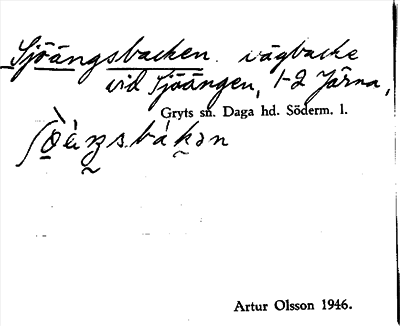 Sjöängsbacken vägbacke
vid Sjöängen, 1-2 Järna,
Gryts sn. Daga hd. Söderm. l.
Artur Olsson 1946.